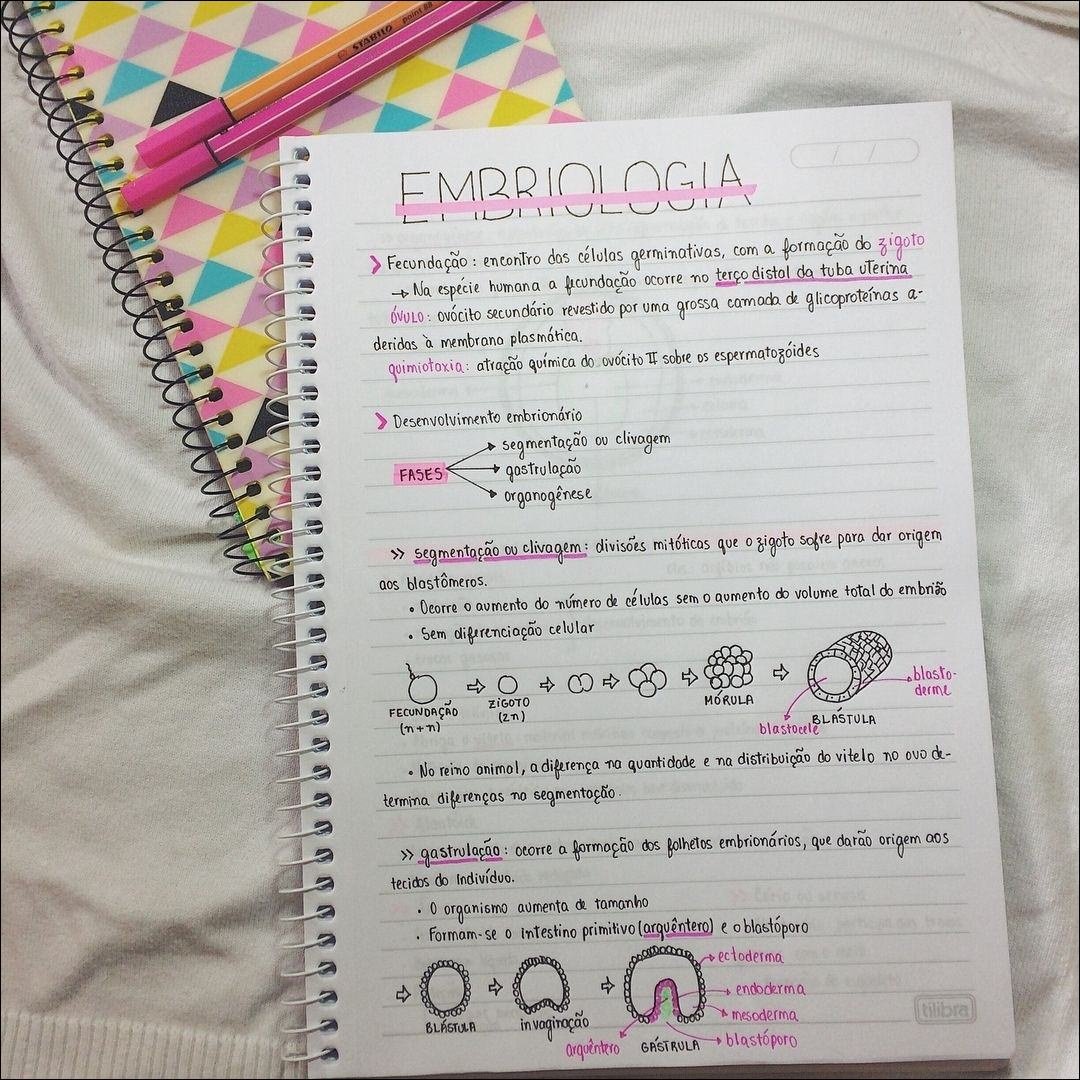 STABILO point 88
EMBRIOLOGIA
/ /
Fecundação: encontro das células germinativas, com a formação do zigoto
→ Na espécie humana a fecundação ocorre no terço distal da tuba uterina
ÓVULO: ovócito secundário revestido por uma grossa camada de glicoproteínas a-
deridas à membrana plasmática.
quimiotaxia: atração química do ovócito II sobre os espermatozóides
Desenvolvimento embrionário
FASES
segmentação ou clivagem
gastrulação
organogênese
>> segmentação ou clivagem: divisões mitóticas que o zigoto sofre para dar origem
aos blastômeros.
• Ocorre o aumento do número de células sem o aumento do volume total do embrião
• Sem diferenciação celular
FECUNDAÇÃO
(n+n)
ZIGOTO
(2n)
MÓRULA
BLÁSTULA
blastocele
blasto-
derme
• No reino animal, a diferença na quantidade e na distribuição do vitelo no ovo de-
termina diferenças na segmentação.
>> gastrulação: ocorre a formação dos folhetos embrionários, que darão origem aos
tecidos do indivíduo.
• O organismo aumenta de tamanho
• Formam-se o intestino primitivo (arquêntero) e o blastóporo
BLÁSTULA
invaginação
GÁSTRULA
ectoderma
endoderma
mesoderma
blastóporo
arquêntero
tilibra